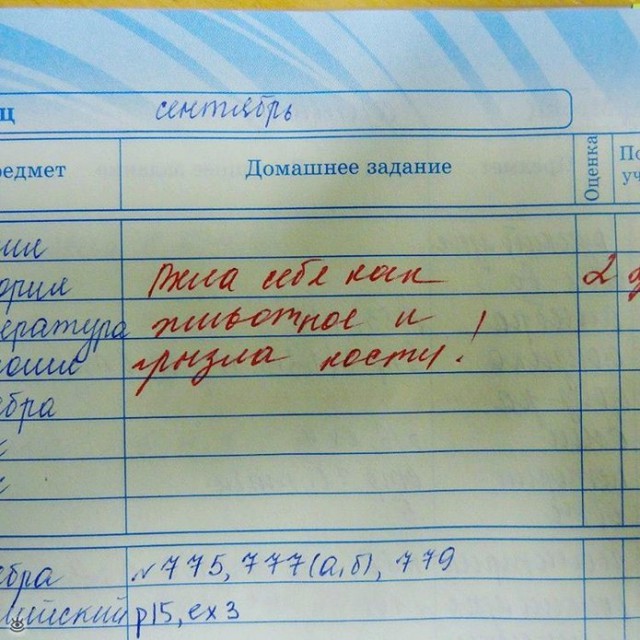 ц сентябрь
редмет Домашнее задание Оценка По
уч
ория Вела себя как 2
ература животное и
грызла кости!
ебра
ебра №775, 777(а,б), 779
ийский p15, ex3